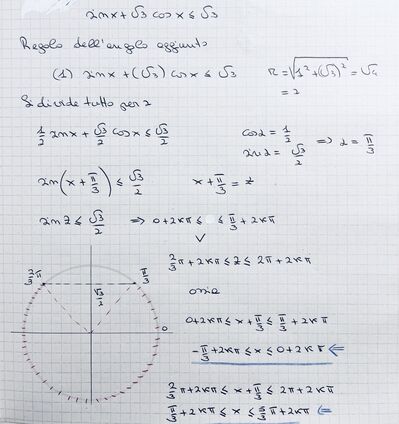 sinx + √3 cosx ≤ √3
Regola dell'angolo aggiunto
(1) sinx + (√3) cosx ≤ √3
r = √(1² + (√3)²) = √4
= 2
Si divide tutto per 2
1/2 sinx + √3/2 cosx ≤ √3/2
cosα = 1/2
sinα = √3/2
⇒ α = π/3
sin(x + π/3) ≤ √3/2
x + π/3 = z
sin z ≤ √3/2 ⇒ 0 + 2kπ ≤ ≤ π/3 + 2kπ
∨
2/3 π + 2kπ ≤ z ≤ 2π + 2kπ
ossia
0 + 2kπ ≤ x + π/3 ≤ π/3 + 2kπ
-π/3 + 2kπ ≤ x ≤ 0 + 2kπ ⇐
2/3 π + 2kπ ≤ x + π/3 ≤ 2π + 2kπ
π/3 + 2kπ ≤ x ≤ 5/3 π + 2kπ ⇐
2/3 π
π/3
√3/2
0